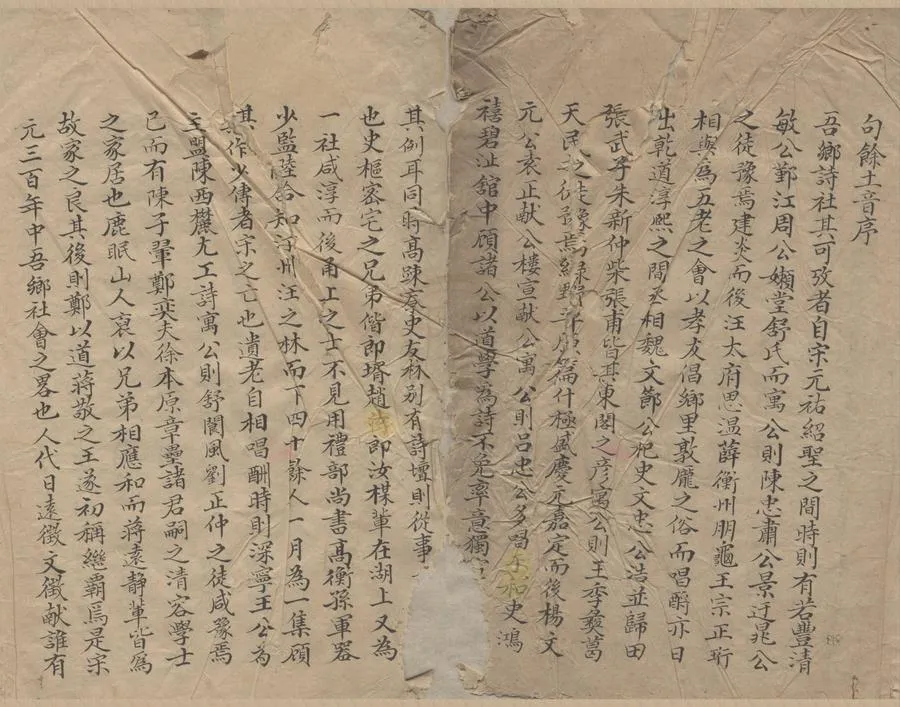 句餘土音序
吾鄉詩社其可攷者自宋元祐紹聖之間時則有若豐清
敏公鄞江周公嬾堂舒氏而寓公則陳忠肅公景迂晁公
之徒豫焉建炎而後汪太府思温薛衡州朋龜王宗正珩
相與為五老之會以孝友倡鄉里敦龐之俗而唱酬亦日
出乾道淳熙之間丞相魏文節公杞史文忠公浩並歸田
張武子朱新仲柴張甫皆其東閣之彥寓公則王季彝葛
天民之徒豫焉綠野平原篇什極盛慶元嘉定而後楊文
元公袁正献公樓宣献公寓公則呂忠公多唱和史鴻
禧碧沚舘中顧諸公以道學為詩不免率意獨
其例耳同時高踈寮史友林别有詩壇則從事
也史樞密宅之兄弟偕郎壻趙即汝楳輩在湖上又為
一社咸淳而後甬上之士不見用禮部尚書高衡孫軍器
少監陸合知汀州汪之林而下四十餘人一月為一集顧
其作少傳者宋之亡也遺老自相唱酬時則深寧王公為
主盟陳西麓尤工詩寓公則舒閬風劉正仲之徒咸豫焉
已而有陳子翬鄭奕夫徐本原章壘諸君嗣之清容學士
之家居也鹿眠山人裒以兄弟相應和而蔣遠静輩皆為
故家之良其後則鄭以道蔣敬之王遂初稱繼覇焉是宋
元三百年中吾鄉社會之畧也人代日遠徵文徵献誰有